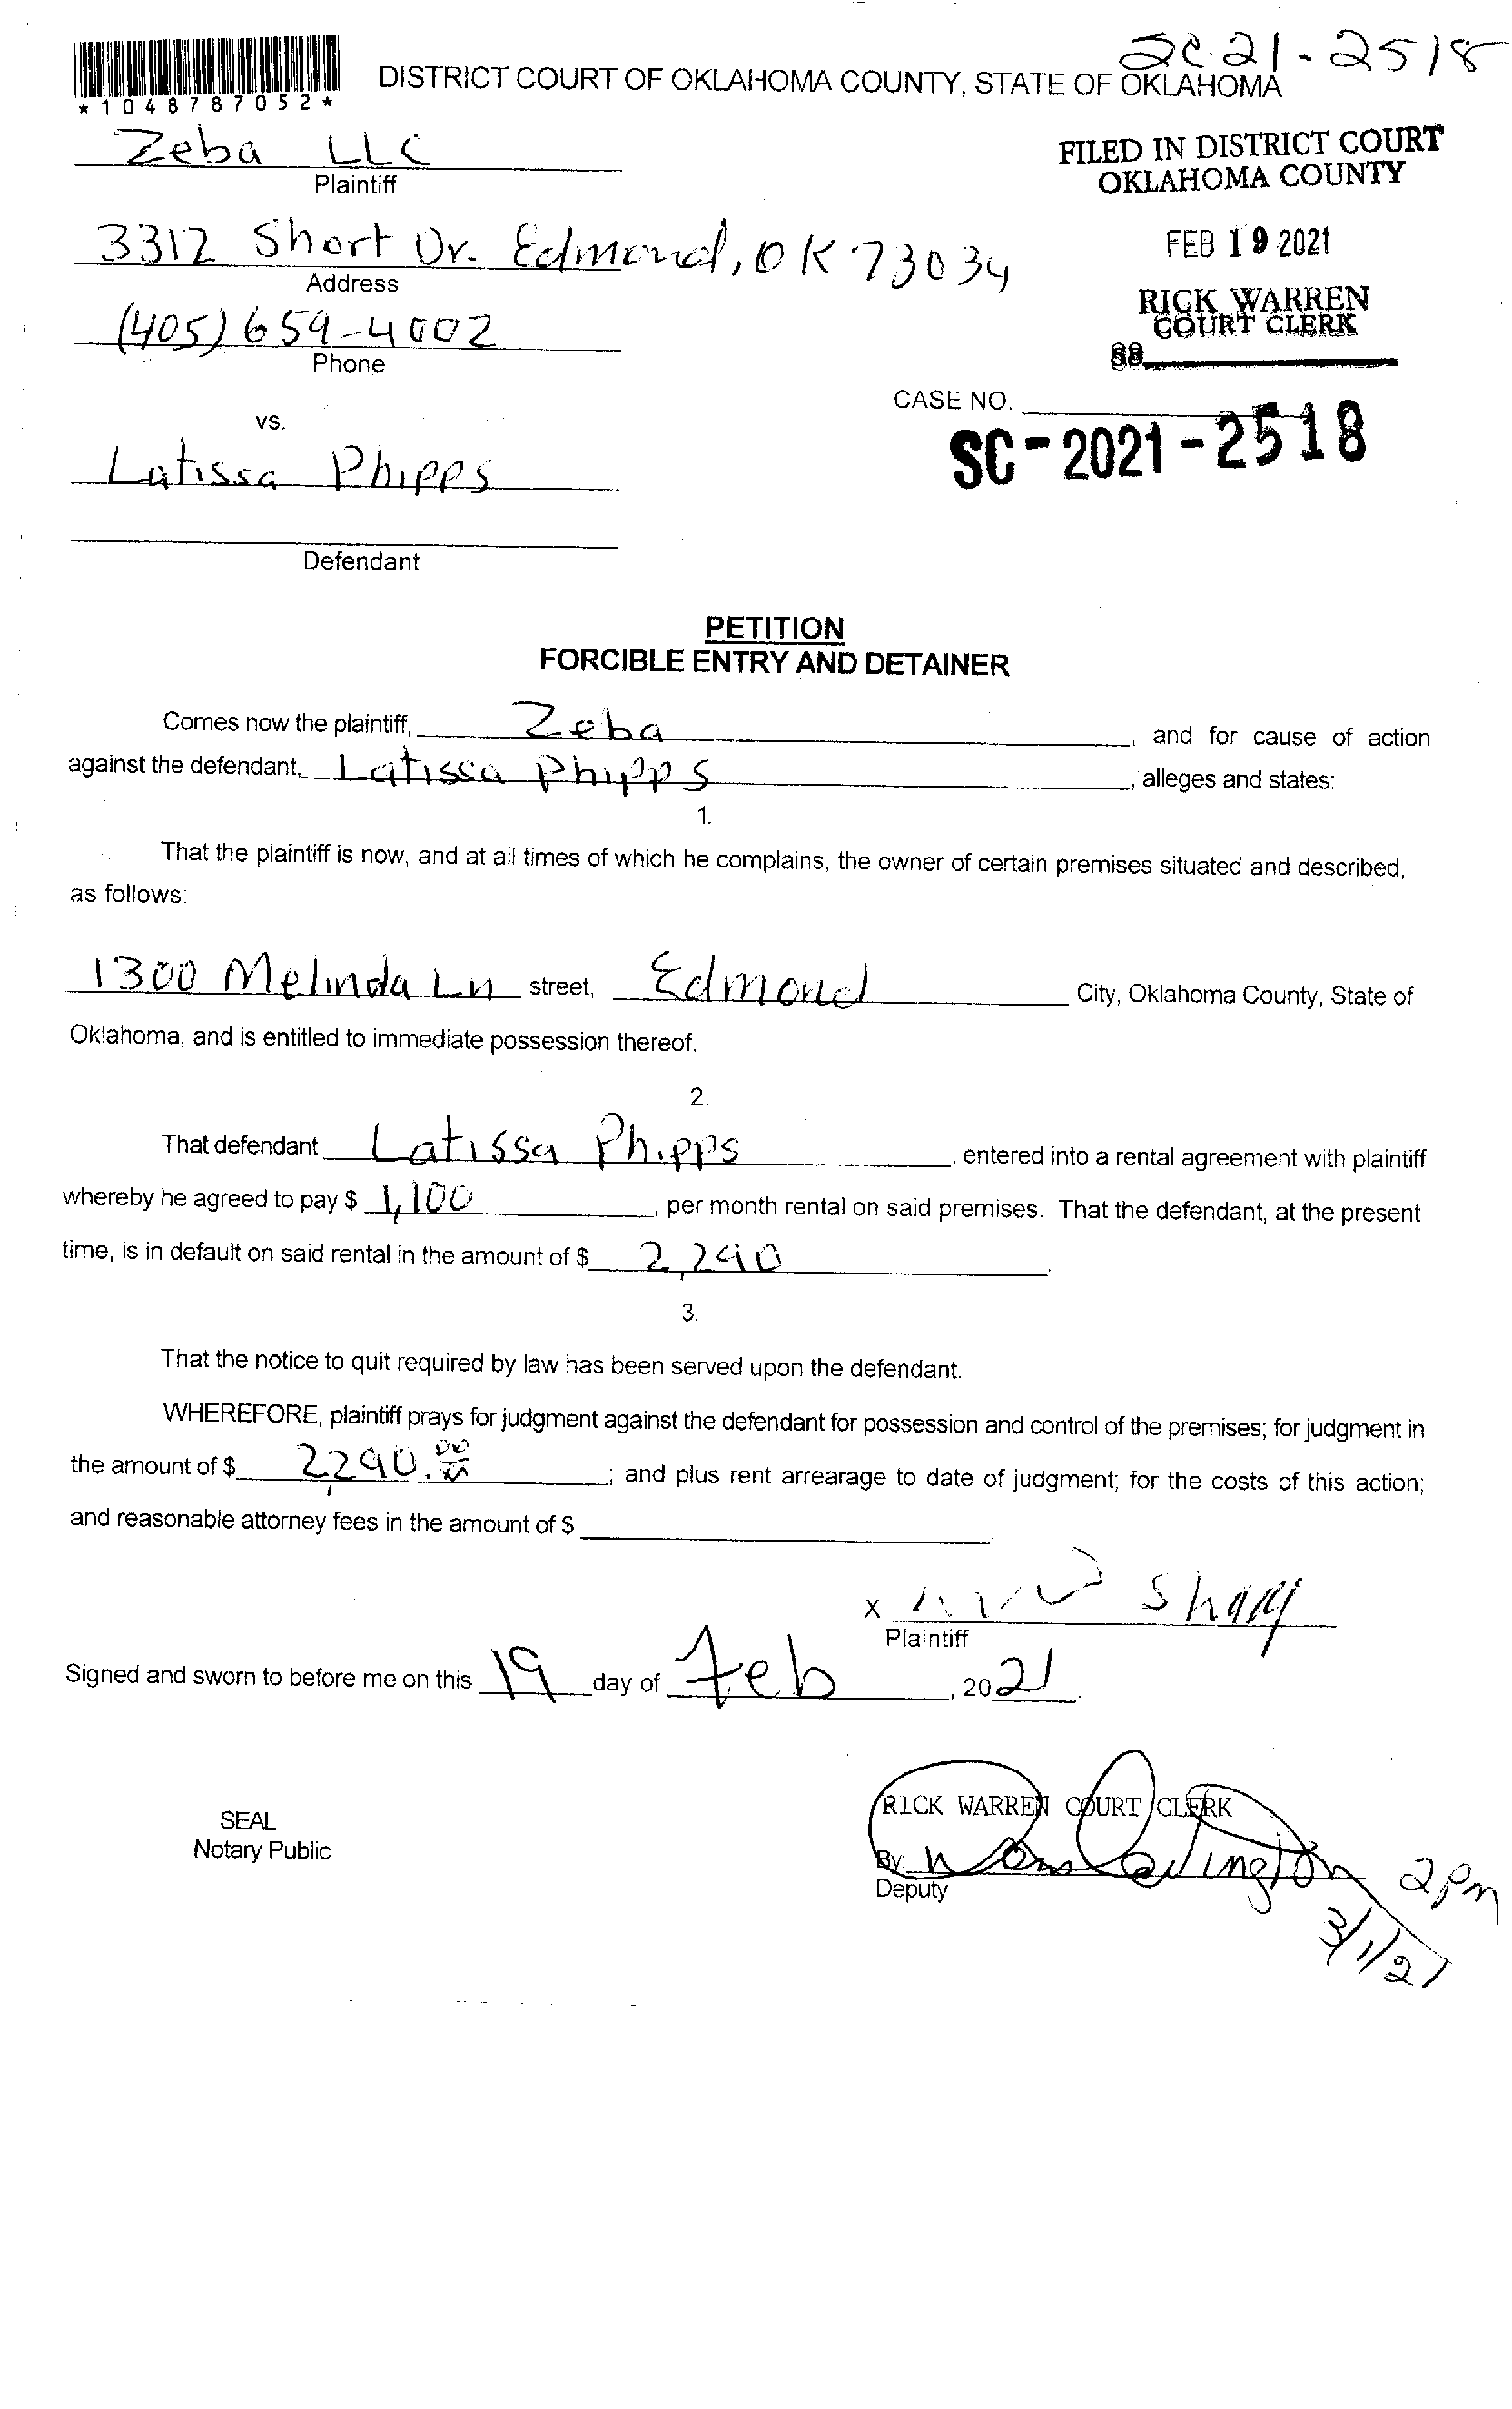 SC-21-2518
*1048787052*
DISTRICT COURT OF OKLAHOMA COUNTY, STATE OF OKLAHOMA
Zeba LLC
Plaintiff
FILED IN DISTRICT COURT
OKLAHOMA COUNTY
3312 Short Dr. Edmond, OK 73034
Address
FEB 19 2021
RICK WARREN
COURT CLERK
(405) 659-4002
Phone
CASE NO.
SC-2021-2518
vs.
Latissa Phipps
Defendant
PETITION
FORCIBLE ENTRY AND DETAINER
Comes now the plaintiff, Zeba, and for cause of action
against the defendant, Latissa Phipps, alleges and states:
1.
That the plaintiff is now, and at all times of which he complains, the owner of certain premises situated and described,
as follows:
1300 Melinda Ln street, Edmond City, Oklahoma County, State of
Oklahoma, and is entitled to immediate possession thereof.
2.
That defendant Latissa Phipps, entered into a rental agreement with plaintiff
whereby he agreed to pay $ 1,100, per month rental on said premises. That the defendant, at the present
time, is in default on said rental in the amount of $ 2,290.
3.
That the notice to quit required by law has been served upon the defendant.
WHEREFORE, plaintiff prays for judgment against the defendant for possession and control of the premises; for judgment in
the amount of $ 2,290.00; and plus rent arrearage to date of judgment; for the costs of this action;
and reasonable attorney fees in the amount of $
X
Plaintiff
Signed and sworn to before me on this 19 day of Feb, 2021.
RICK WARREN COURT CLERK
SEAL
Notary Public
By:
Deputy
2pm
3/1/21